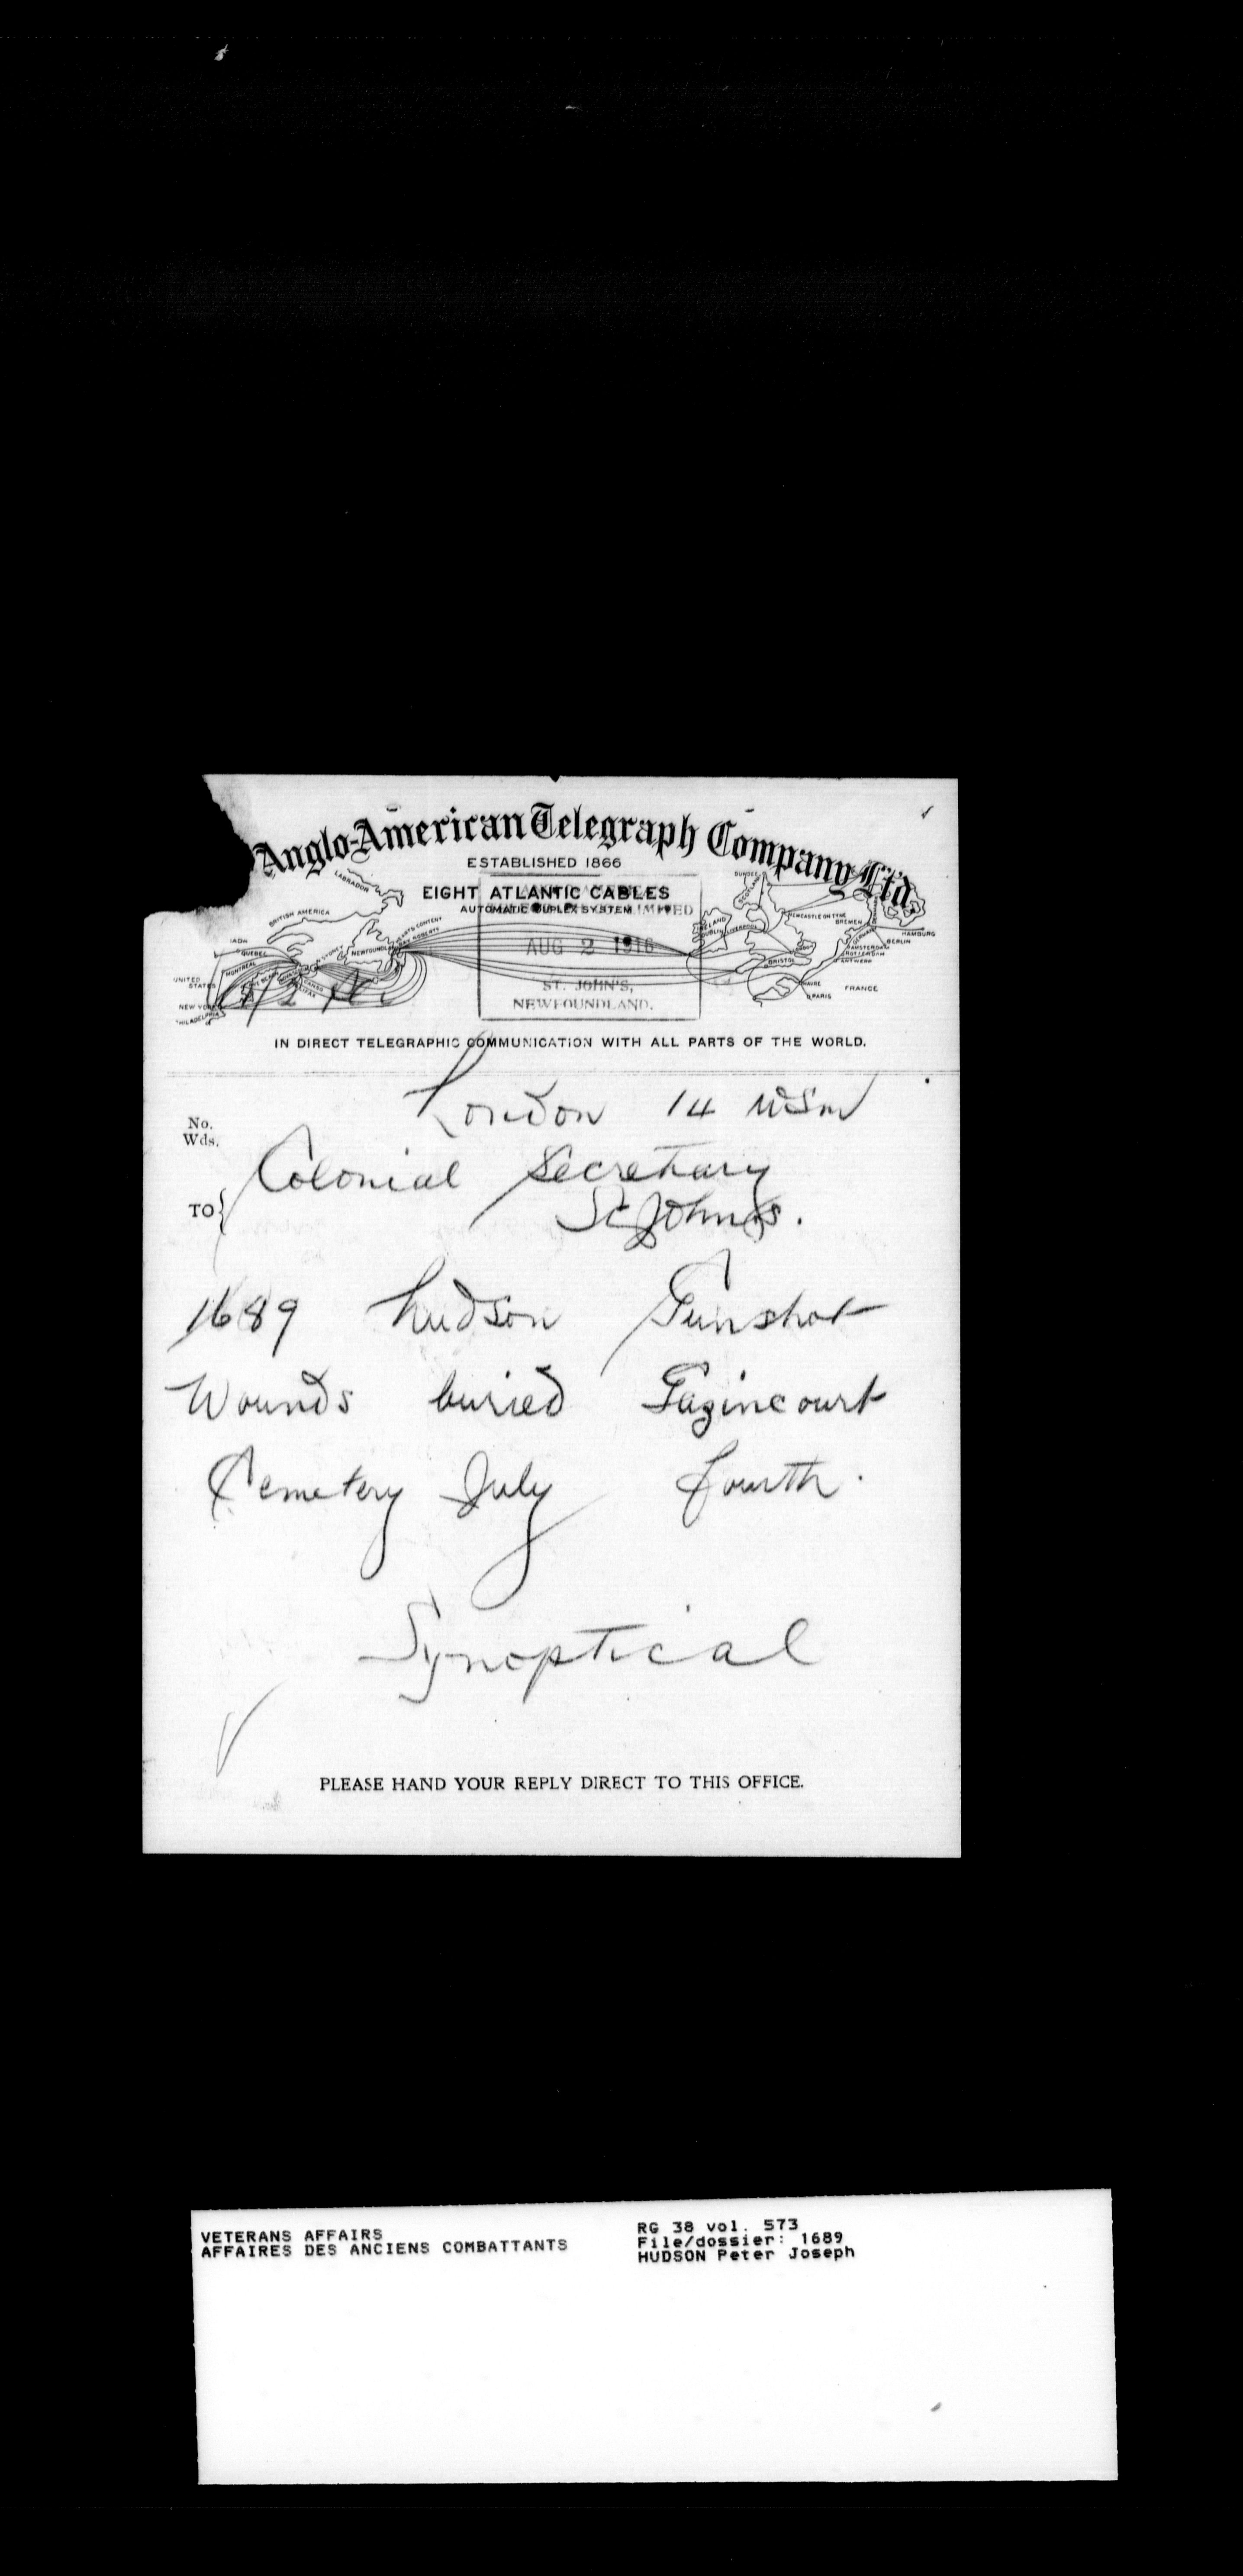 Anglo-American Telegraph Company Ltd.
ESTABLISHED 1866
EIGHT ATLANTIC CABLES
AUTOMATIC DUPLEX SYSTEM
LABRADOR
BRITISH AMERICA
QUEBEC
MONTREAL
UNITED STATES
NEW YORK
PHILADELPHIA
NEWFOUNDLAND
HEARTS CONTENT
BAY ROBERTS
HALIFAX
DUNDEE
SCOTLAND
IRELAND
DUBLIN
LIVERPOOL
NEWCASTLE ON TYNE
BREMEN
HAMBURG
BERLIN
AMSTERDAM
ROTTERDAM
ANTWERP
BRISTOL
HAVRE
PARIS
FRANCE
AUG 2 1916
ST. JOHN'S,
NEWFOUNDLAND.
IN DIRECT TELEGRAPHIC COMMUNICATION WITH ALL PARTS OF THE WORLD.
London 14
No.
Wds.
TO Colonial Secretary
St Johns.
1689 Hudson Gunshot
Wounds buried Gazincourt
Cemetery July fourth.
Synoptical
PLEASE HAND YOUR REPLY DIRECT TO THIS OFFICE.
VETERANS AFFAIRS
AFFAIRES DES ANCIENS COMBATTANTS
RG 38 vol. 573
File/dossier: 1689
HUDSON Peter Joseph